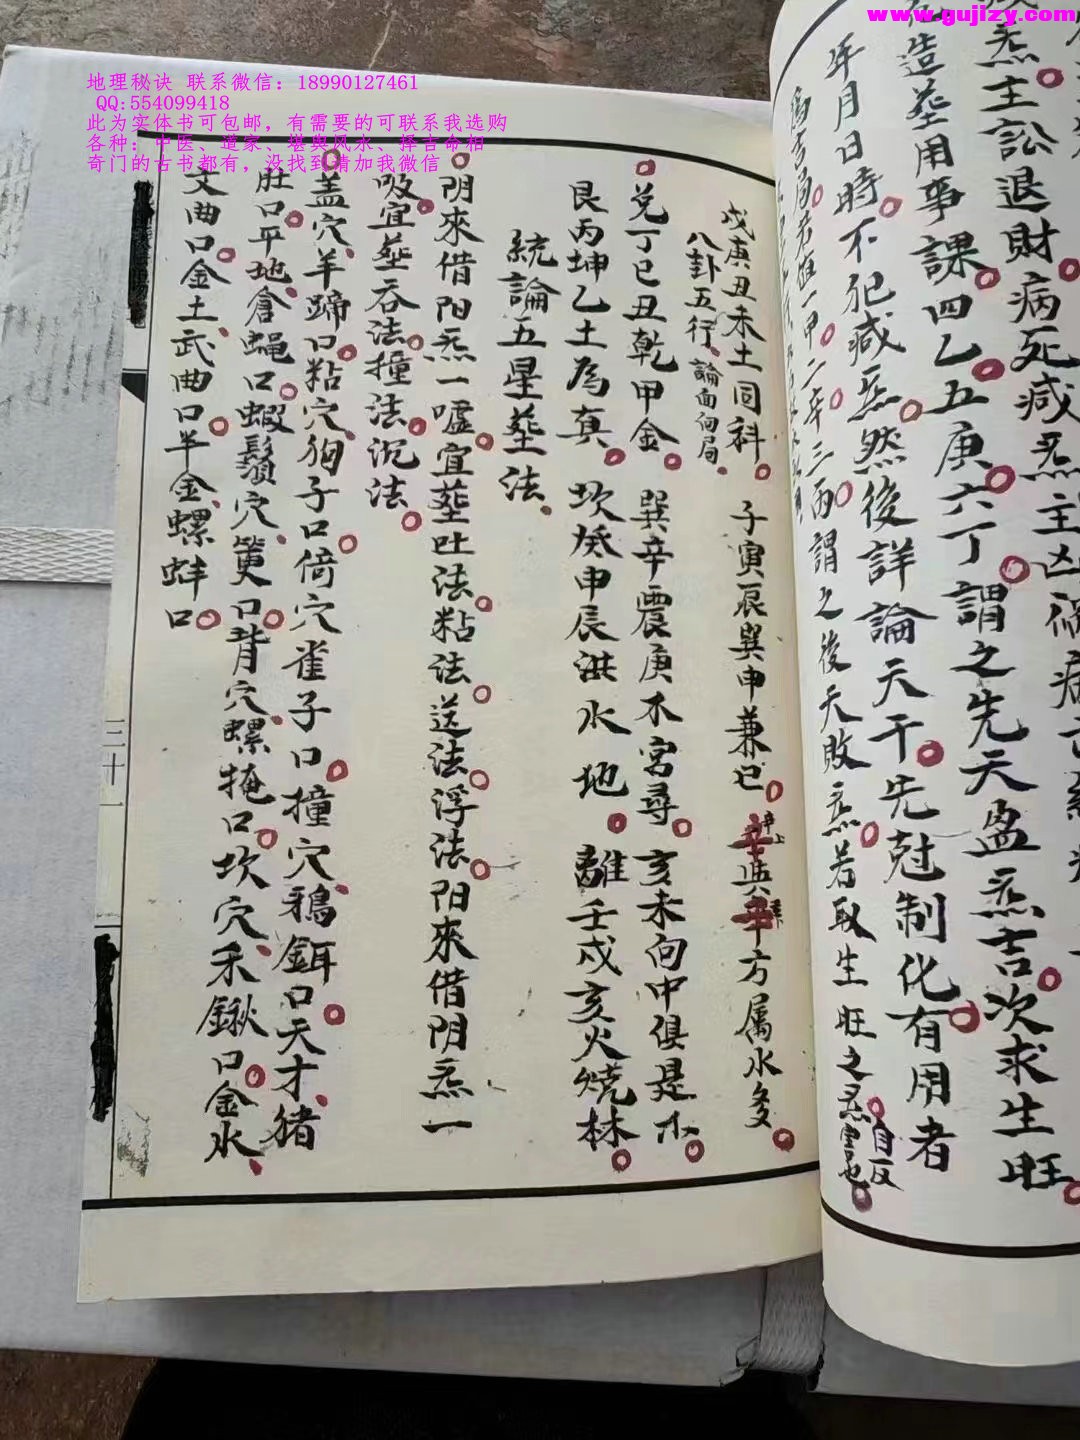 www.gujizy.com
地理秘诀 联系微信：18990127461
QQ:554099418
此为实体书可包邮，有需要的可联系我选购
各种：中医、道家、堪舆风水、择吉命相
奇门的古书都有，没找到请加我微信
炁主訟退財病死減炁主凶禍病
造葬用事課四乙五庚六丁謂之先天盈炁吉次求生旺
年月日時不犯减炁然後詳論天干先尅制化有用者
為吉局若值一甲二辛三丙謂之後天敗炁若取生旺之炁
自反
害也
戊庚丑未土同科 子寅辰巽申兼巳 方屬水多
八卦五行 論面向局
兌丁巳丑乾甲金 巽辛震庚木宮尋 亥未向中俱是木
艮丙坤乙土為真 坎癸申辰洪水地 離壬戌亥火燒林
統論五星塟法
阴來借阳炁一噓宜塟吐法粘法送法浮法阳來借阴炁一
吸宜塟吞法撞法沉法
盖穴羊蹄口粘穴狗子口倚穴雀子口撞穴鴉鉺口天才猪
肚口平地倉蝇口蝦鬚穴 口背穴螺掩口坎穴禾鍬口金水
文曲口金土武曲口半金螺蚌口
三十一